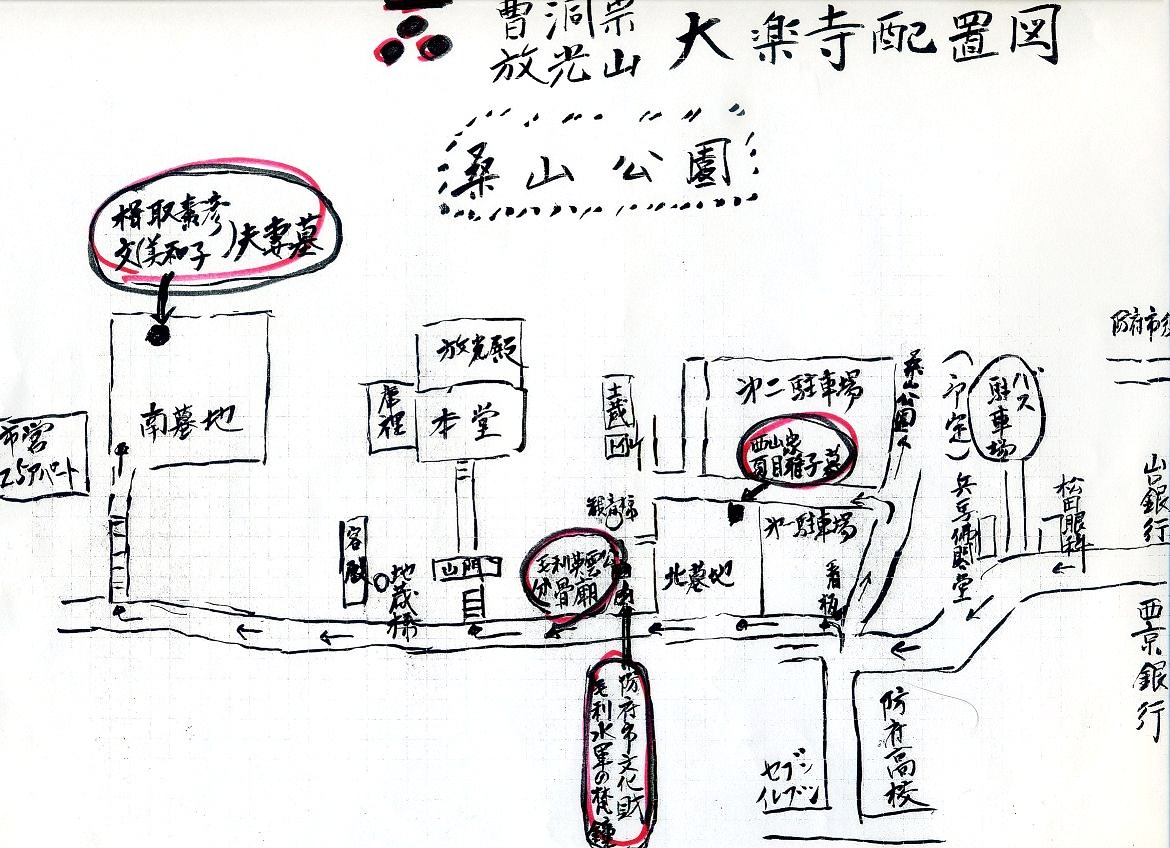 曹洞宗
放光山
大楽寺配置図
桑山公園
楫取素彦
文(美和子)夫妻墓
南墓地
市営
アパート
放光殿
庫裡
本堂
客殿
地蔵様
山門
土蔵
観音様
毛利輝元公
分骨廟
防府市文化財
毛利水軍の梵鐘
北墓地
第二駐車場
西山忠
夏目雅子墓
第一駐車場
看板
桑山公園へ
(予定)
バス
駐車場
兵子佛閣堂
松田眼科
防府市
山口銀行
西京銀行
セブン
イレブン
防府高校